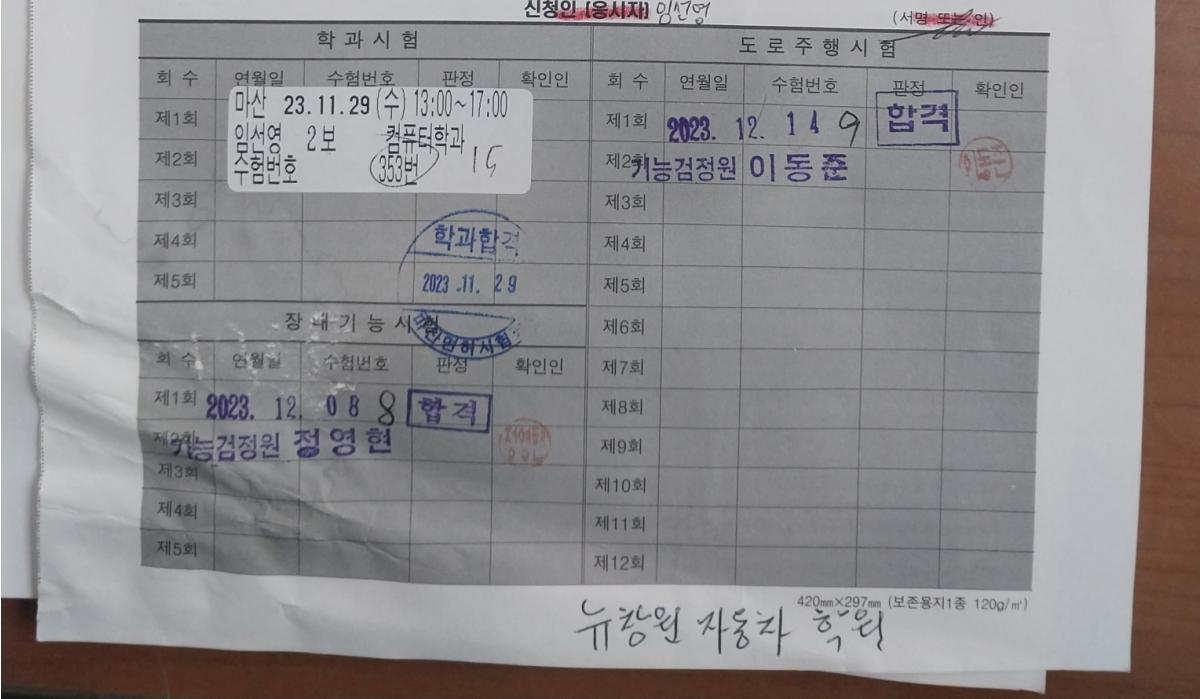 신청인 (응시자) 임선영 (서명 또는 인)
학과시험
회 수 연월일 수험번호 판정 확인인
제1회
마산 23.11.29 (수) 13:00~17:00
임선영 2보 컴퓨터학과
수험번호 353번
제2회
제3회
제4회
제5회
학과합격
2023.11. 29
장내기능시험
회 수 연월일 수험번호 판정 확인인
제1회 2023. 12. 08 8 합격
제2회 기능검정원 정영현
제3회
제4회
제5회
도로주행시험
회 수 연월일 수험번호 판정 확인인
제1회 2023. 12. 14 9 합격
제2회 기능검정원 이동준
제3회
제4회
제5회
제6회
제7회
제8회
제9회
제10회
제11회
제12회
420㎜×297㎜ (보존용지1종 120g/㎡)
뉴창원 자동차 학원